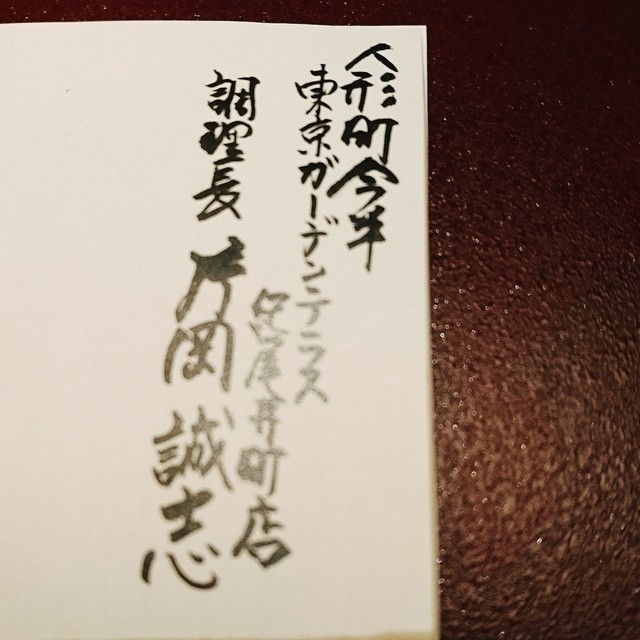 人形町今半
東京ガーデンテラス
紀尾井町店
調理長 片岡 誠志